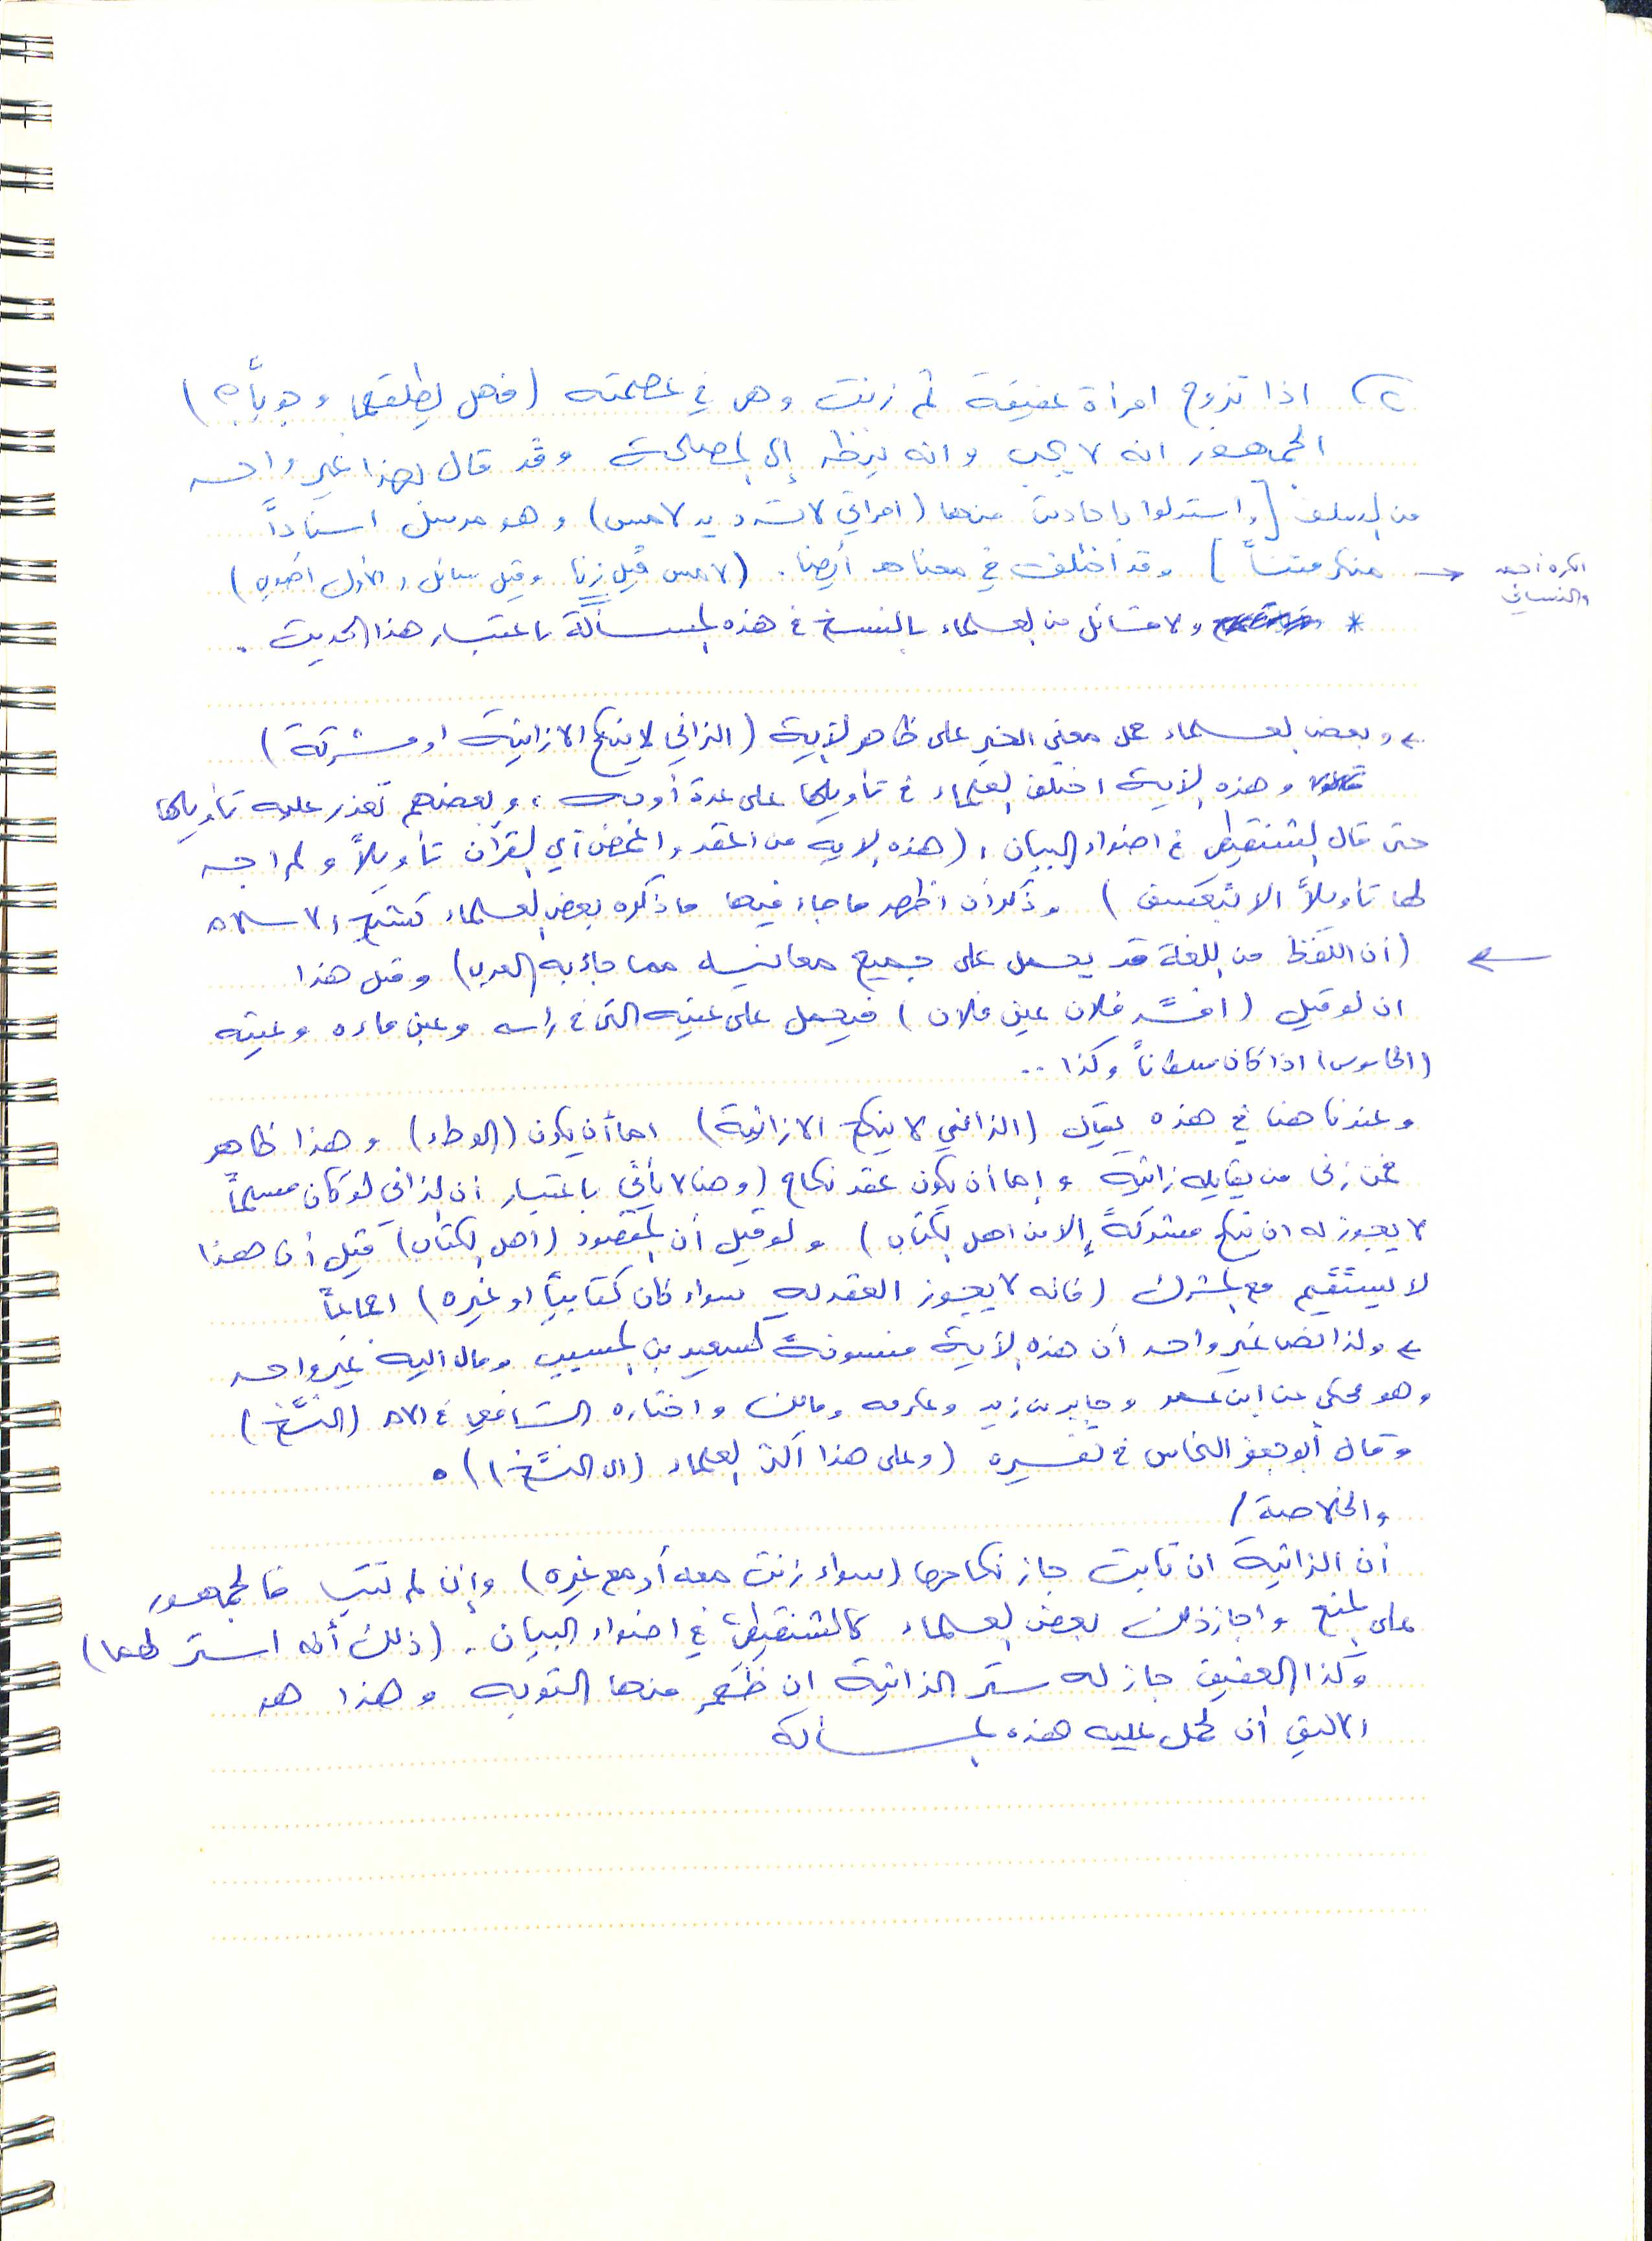 ٢) اذا تزوج امرأة عفيفة ثم زنت وهي في عصمته (فهل يطلقها وجوباً؟)
الجمهور انه لا يجب وانه ينظر إلى المصلحة وقد قال بهذا غير واحد
من السلف [واستدلوا باحاديث منها (امرأتي لا ترد يد لامس) وهو مرسل اسناداً
منكر متناً] وقد اختلف في معناه أيضا. (لامس قيل زنا وقيل سائل والأول أصوب)
انكره احمد
والنسائي
* ولا قائل من العلماء بالنسخ في هذه المسألة باعتبار هذا الحديث.
← وبعض العلماء حمل معنى الخبر على ظاهر الآية (الزاني لا ينكح الا زانية او مشركة)
وهذه الآية اختلف العلماء في تأويلها على عدة أوجه، وبعضهم تعذر عليه تأويلها
حتى قال الشنقيطي في اضواء البيان: (هذه الاية من اعقد واغمض آي القرآن تأويلاً ولم اجد
لها تأويلاً الا بتعسف) وذكر أن اظهر ما جاء فيها ما ذكره بعض العلماء كشيخ الاسلام
← (أن اللفظ من اللغة قد يحمل على جميع معانيه مما جاء به العرب) ومثل هذا
ان لو قيل (افسد فلان عين فلان) فيحمل على عينه التي في راسه وعين ماءه وعينه
(الجاسوس) اذا كان سلطاناً وكذا ..
وعندنا هنا في هذه يقال (الزاني لا ينكح الا زانية) اما أن يكون (الوطء) وهذا ظاهر
فمن زنى من يقابله زانية وإما أن يكون عقد نكاح (وهنا لا يأتي باعتبار أن الزاني لو كان مسلماً
لا يجوز له ان ينكح مشركةً إلا من اهل الكتاب) ولو قيل أن المقصود (اهل الكتاب) قيل أن هذا
لا يستقيم مع المشرك (فانه لا يجوز العقد له سواء كان كتابياً او غيره) اجماعاً
← ولذا نص غير واحد أن هذه الآية منسوخة كسعيد بن المسيب ومال اليه غير واحد
وهو محكي عن ابن عمر وجابر بن زيد وعكرمه ومالك واختاره الشافعي في الأم (النسخ)
وقال أبو جعفر النحاس في تفسيره (وعلى هذا أكثر العلماء (اي النسخ)).
والخلاصة /
أن الزانية ان تابت جاز نكاحها (سواء زنت معه أو مع غيره) وإن لم تتب فالجمهور
على المنع واجاز ذلك بعض العلماء كالشنقيطي في اضواء البيان. (ذلك أنه استر لهما)
وكذا العفيف جاز له ستر الزانية ان ظهر منها التوبه وهذا هو
الاليق أن تحمل عليه هذه المسألة